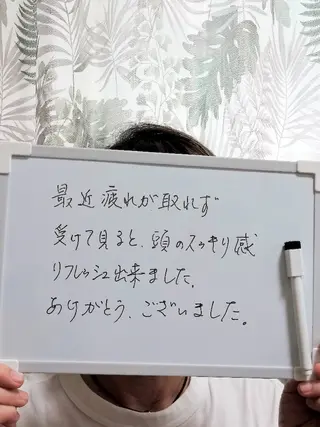 最近疲れが取れず
受けて見ると、頭のスッキリ感
リフレッシュ出来ました。
ありがとう、ございました。